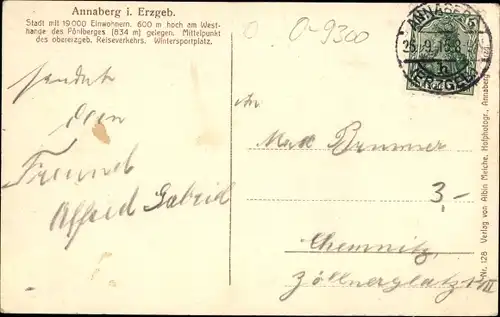 Annaberg i. Erzgeb.
Stadt mit 19000 Einwohnern. 600 m hoch am West-
hange des Pöhlberges (834 m) gelegen. Mittelpunkt
des obererzgeb. Reiseverkehrs. Wintersportplatz.
O-9300
ANNABERG
(ERZGEB.)
sendet
dein
Freund
Alfred Gabriel
Max Brunner
3,-
Chemnitz
Zöllnerplatz
Nr. 126 Verlag von Albin Meiche, Hofphotogr., Annaberg